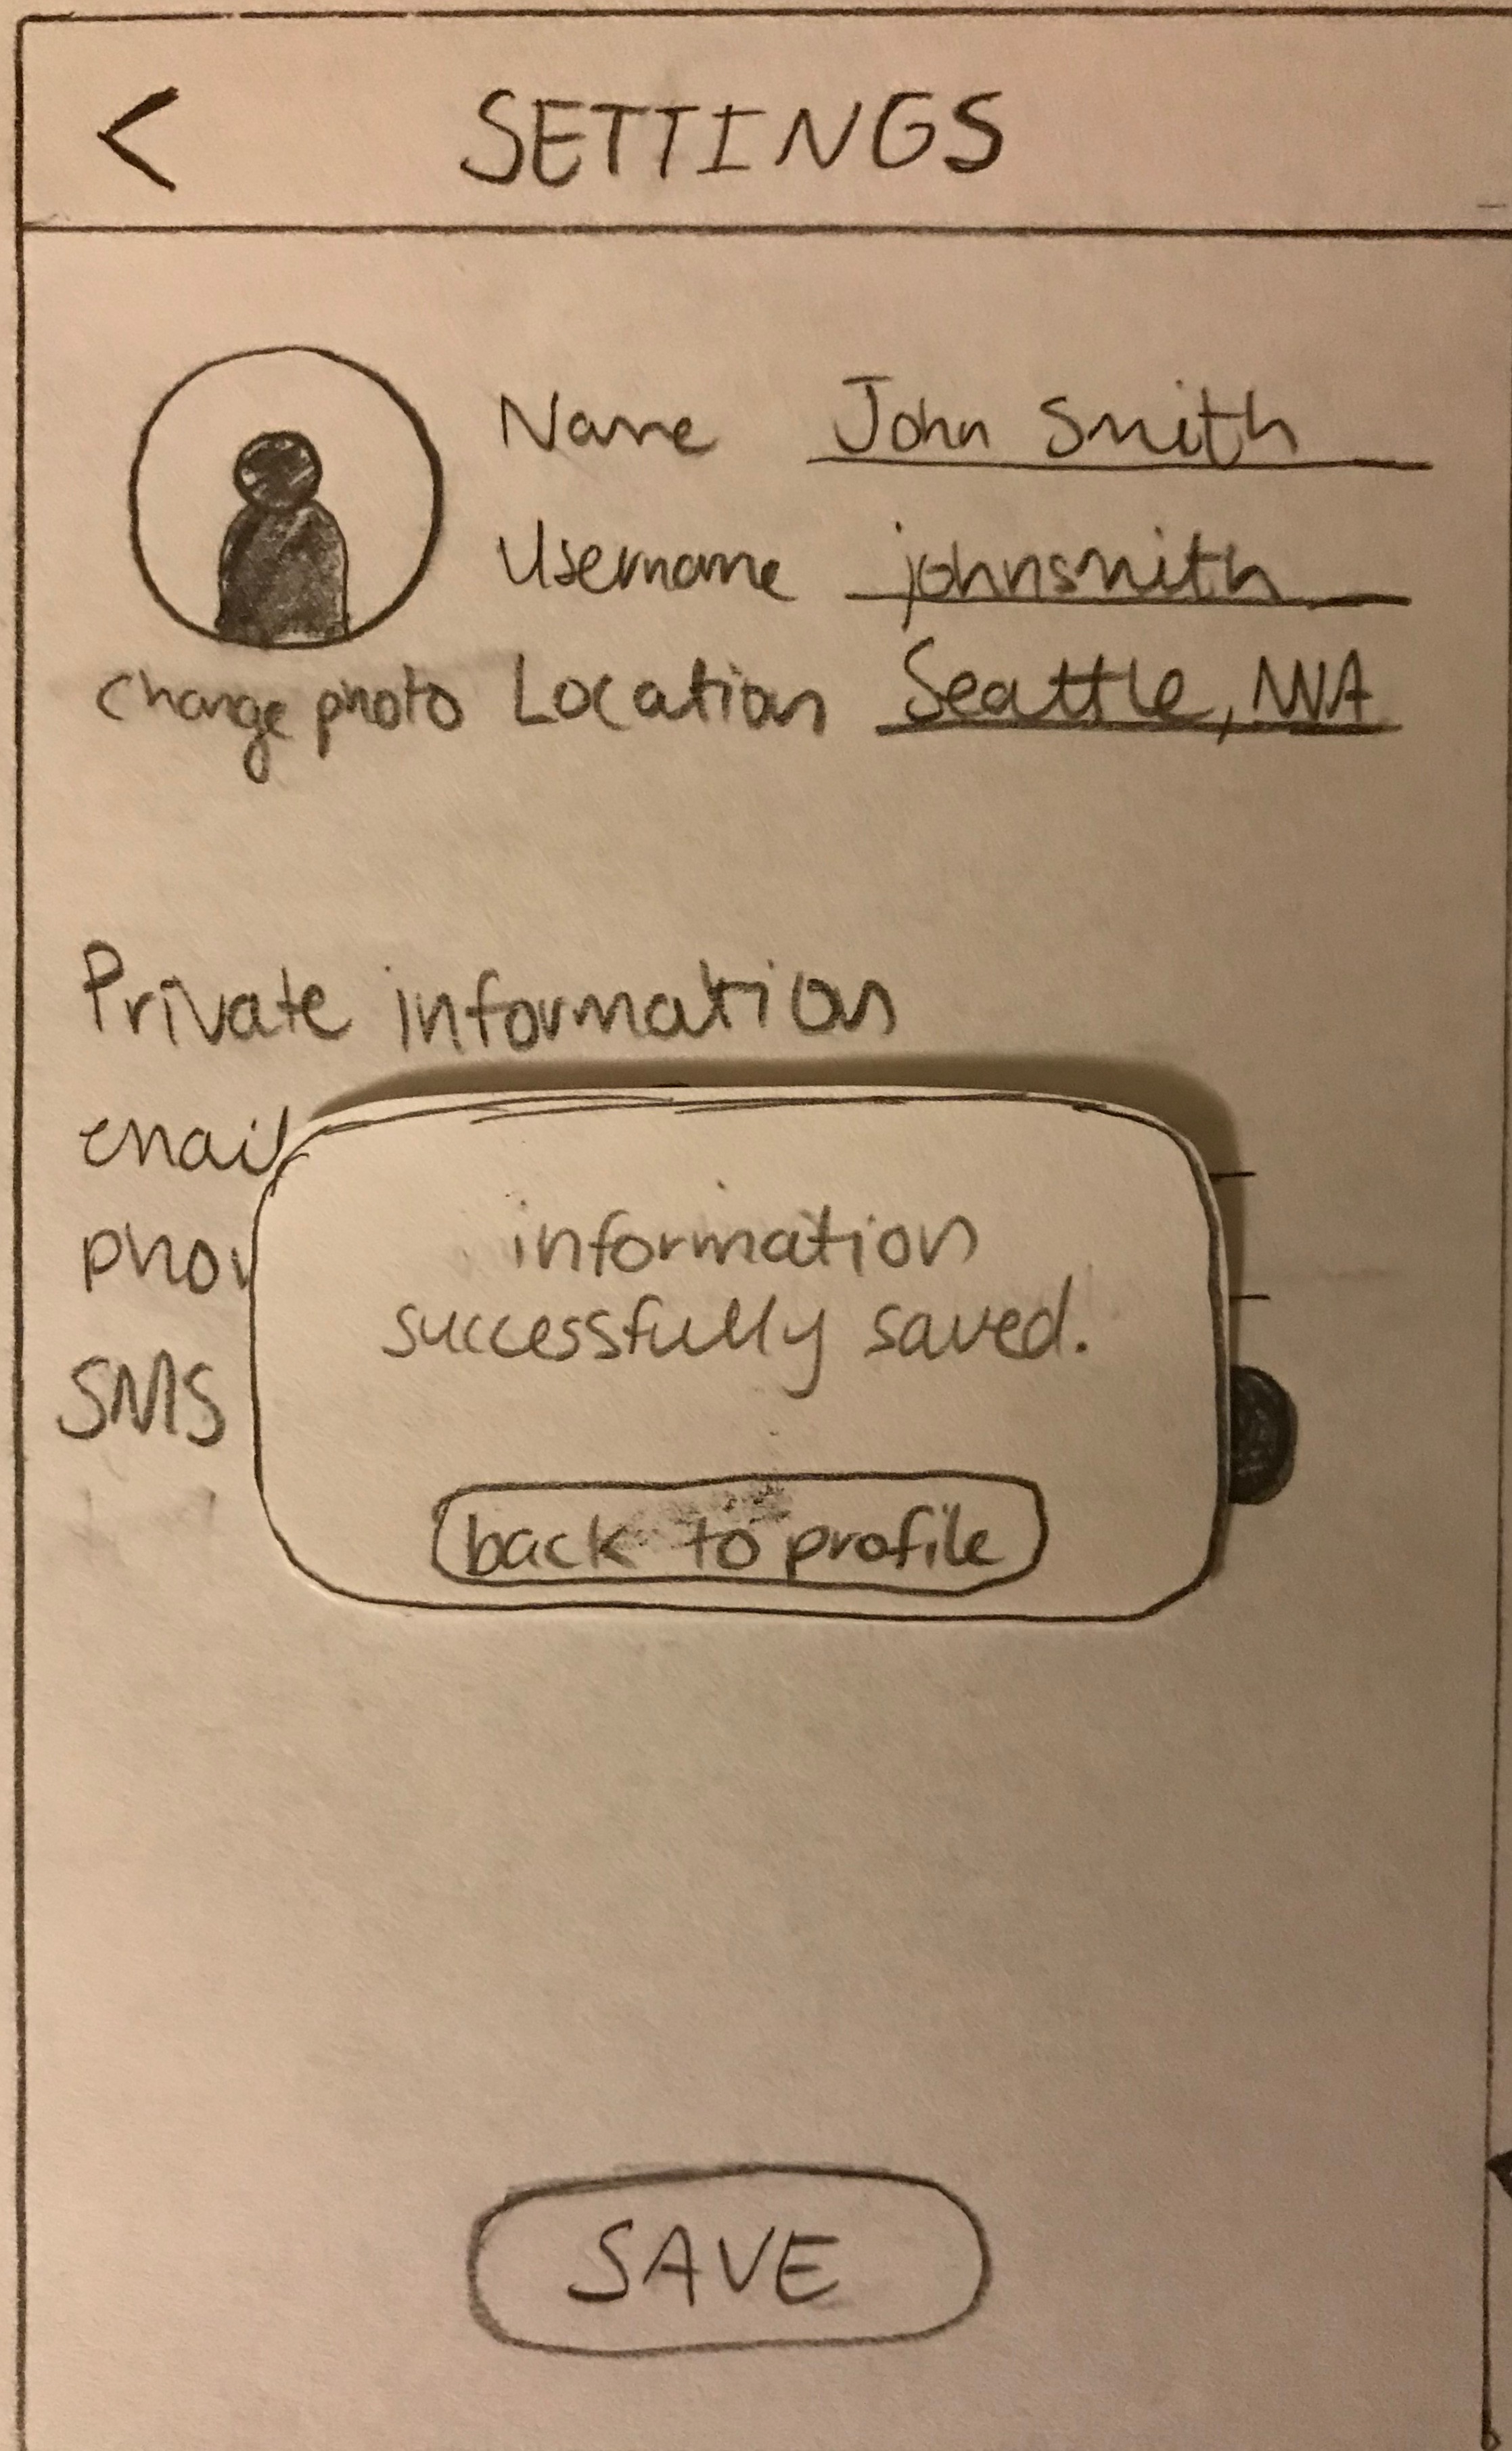 < SETTINGS
Name John Smith
Username johnsmith
change photo Location Seattle, WA
Private information
email
SMS
information
successfully saved.
back to profile
SAVE